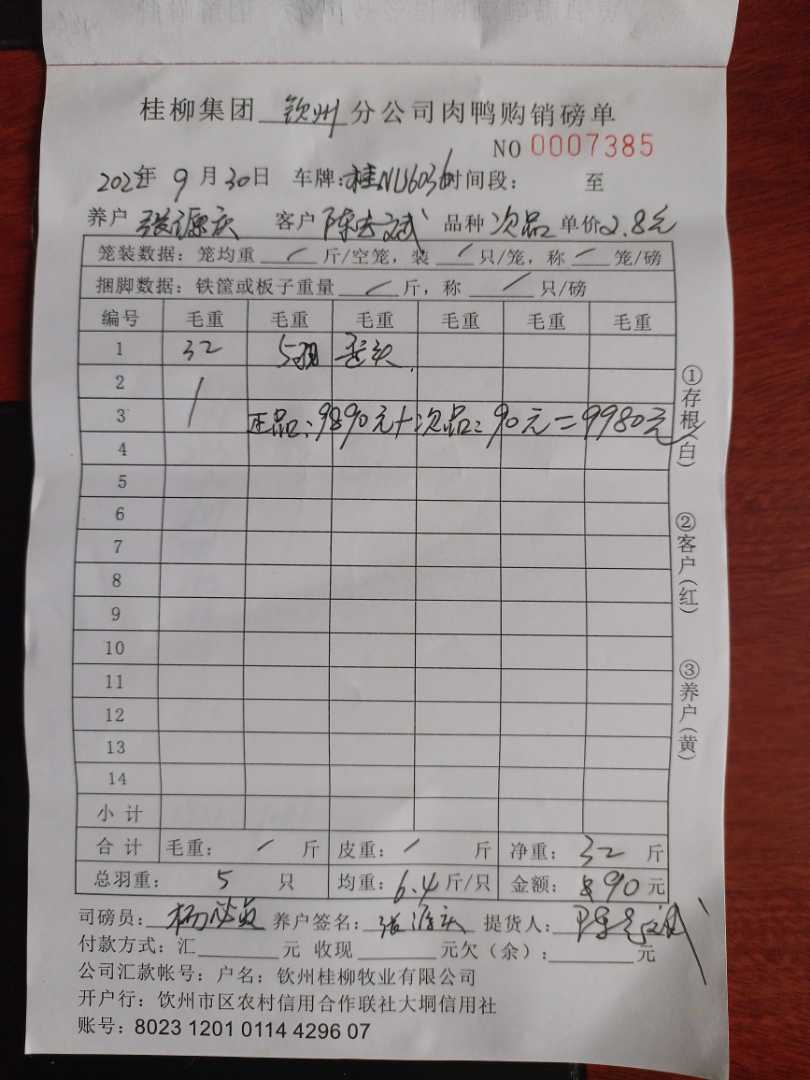 桂柳集团 钦州 分公司肉鸭购销磅单
NO 0007385
2022年 9月30日 车牌:桂NU6036 时间段: 至
养户 张源庆 客户 陈 武 品种 次品 单价 2.8元
笼装数据: 笼均重 / 斤/空笼, 装 / 只/笼, 称 / 笼/磅
捆脚数据: 铁筐或板子重量 / 斤, 称 / 只/磅
编号 毛重 毛重 毛重 毛重 毛重 毛重
1 32 5羽
2 /
3 正品: 9890元+次品: 90元=9980元
4
5
6
7
8
9
10
11
12
13
14
小计
合计 毛重: / 斤 皮重: / 斤 净重: 32 斤
总羽重: 5 只 均重: 6.4 斤/只 金额: 90 元
司磅员: 杨 养户签名: 张源庆 提货人:
付款方式: 汇 元 收现 元欠(余): 元
公司汇款帐号: 户名: 钦州桂柳牧业有限公司
开户行: 钦州市区农村信用合作联社大垌信用社
账号: 8023 1201 0114 4296 07
①存根(白)
②客户(红)
③养户(黄)